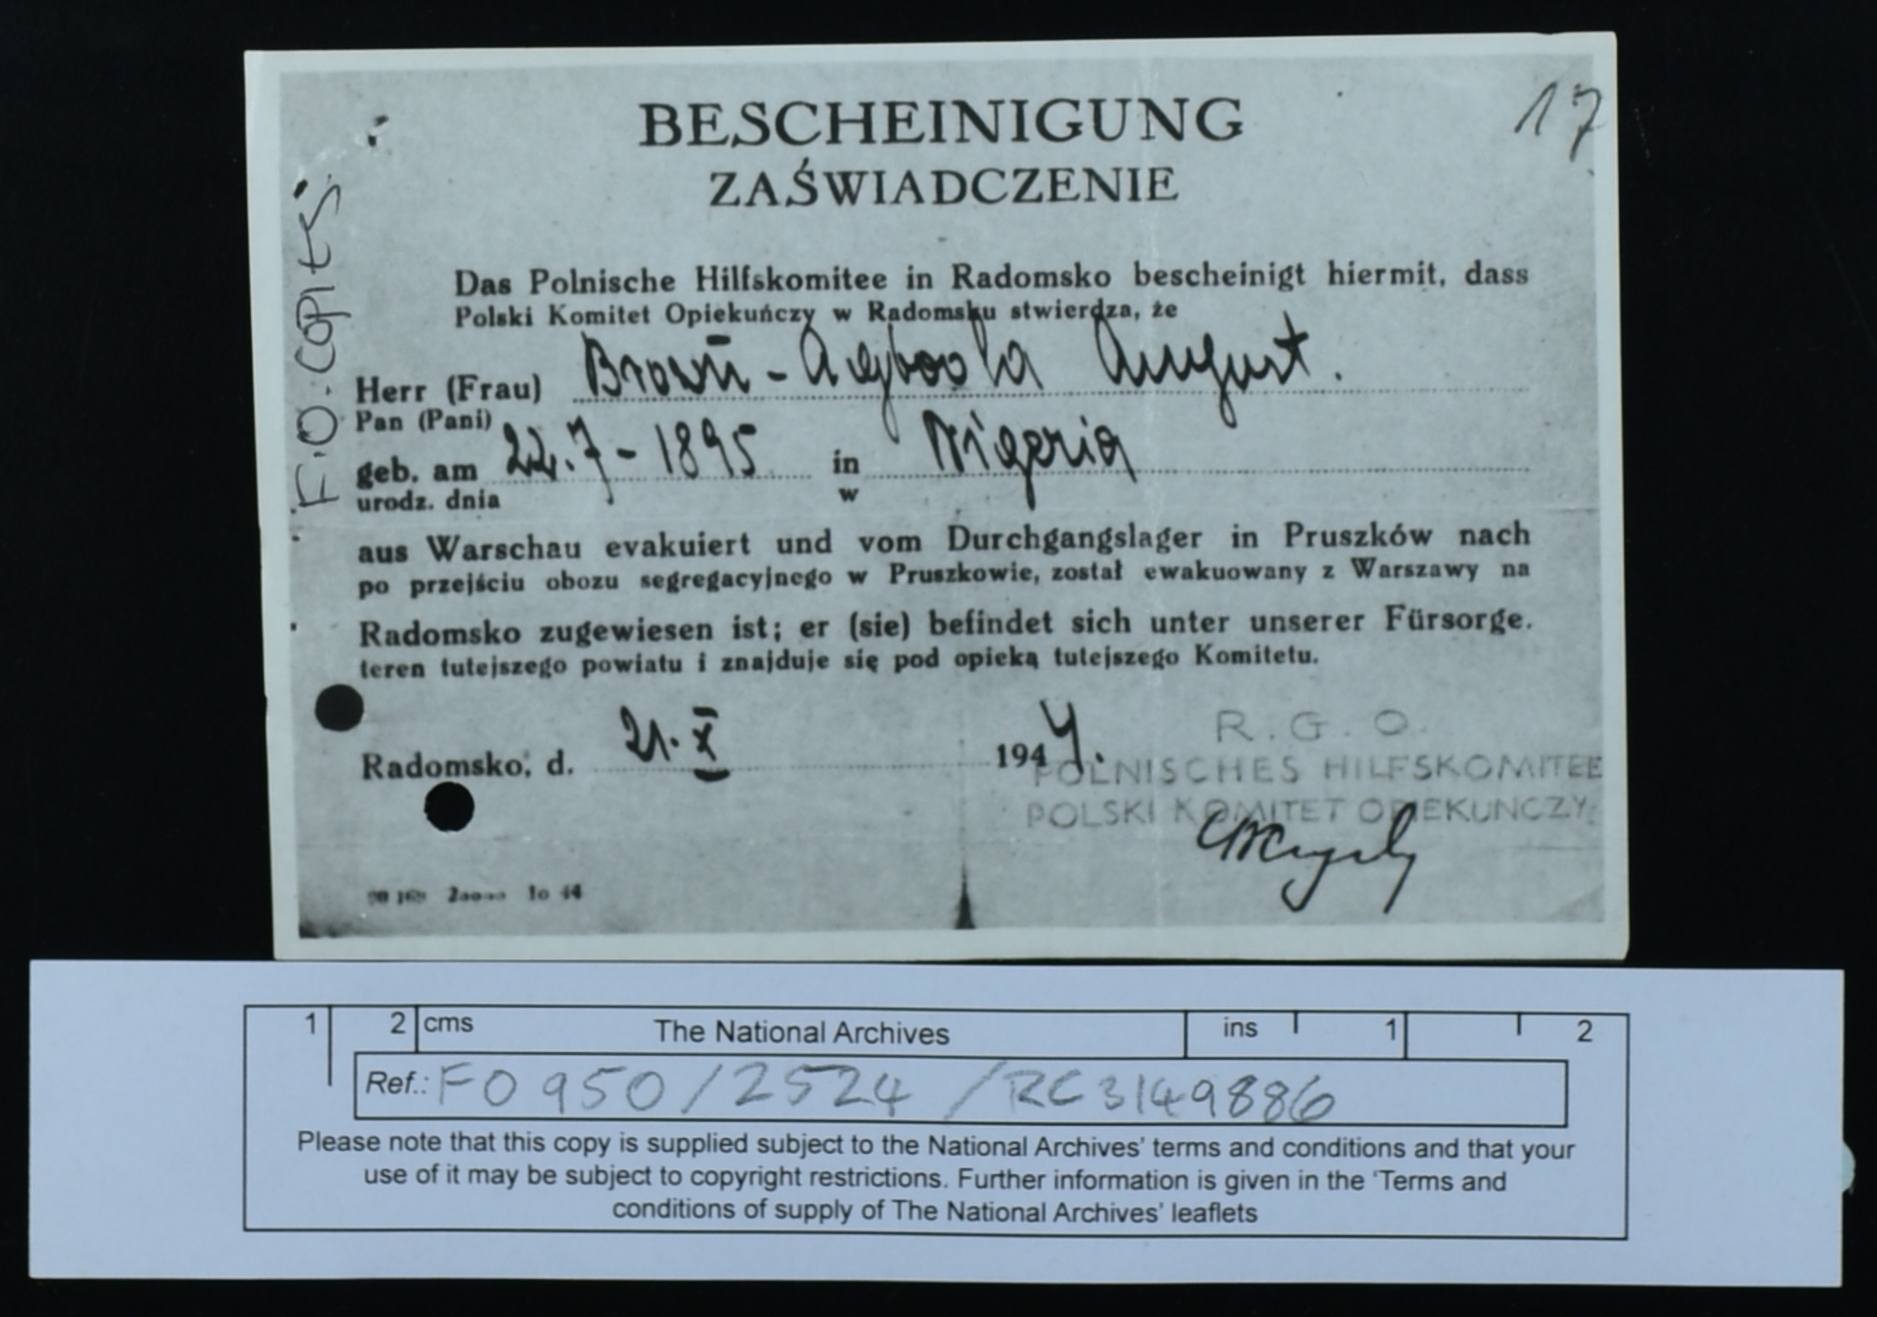 17
F.O. copies.
BESCHEINIGUNG
ZAŚWIADCZENIE
Das Polnische Hilfskomitee in Radomsko bescheinigt hiermit, dass
Polski Komitet Opiekuńczy w Radomsku stwierdza, że
Herr (Frau) Brown-Agboola August.
Pan (Pani)
geb. am 22.7-1895 in Nigeria
urodz. dnia w
aus Warschau evakuiert und vom Durchgangslager in Pruszków nach
po przejściu obozu segregacyjnego w Pruszkowie, został ewakuowany z Warszawy na
Radomsko zugewiesen ist; er (sie) befindet sich unter unserer Fürsorge.
teren tutejszego powiatu i znajduje się pod opieką tutejszego Komitetu.
R. G. O.
Radomsko, d. 21. X 1944.
POLNISCHES HILFSKOMITEE
POLSKI KOMITET OPIEKUNCZY
1 2 cms The National Archives ins 1 2
Ref.: FO 950/2524/RC3149886
Please note that this copy is supplied subject to the National Archives' terms and conditions and that your
use of it may be subject to copyright restrictions. Further information is given in the 'Terms and
conditions of supply of The National Archives' leaflets